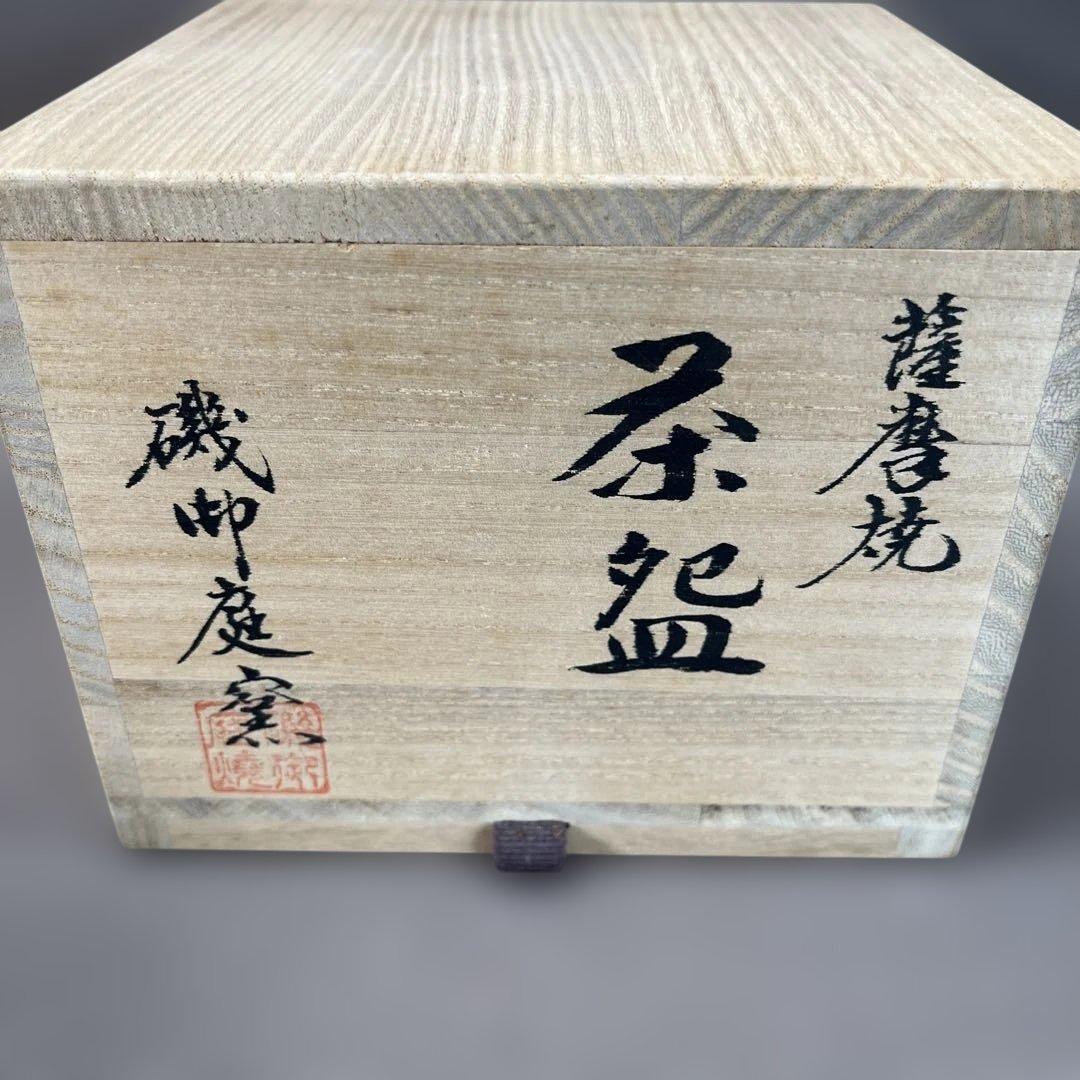 薩摩焼
茶盌
磯御庭窯